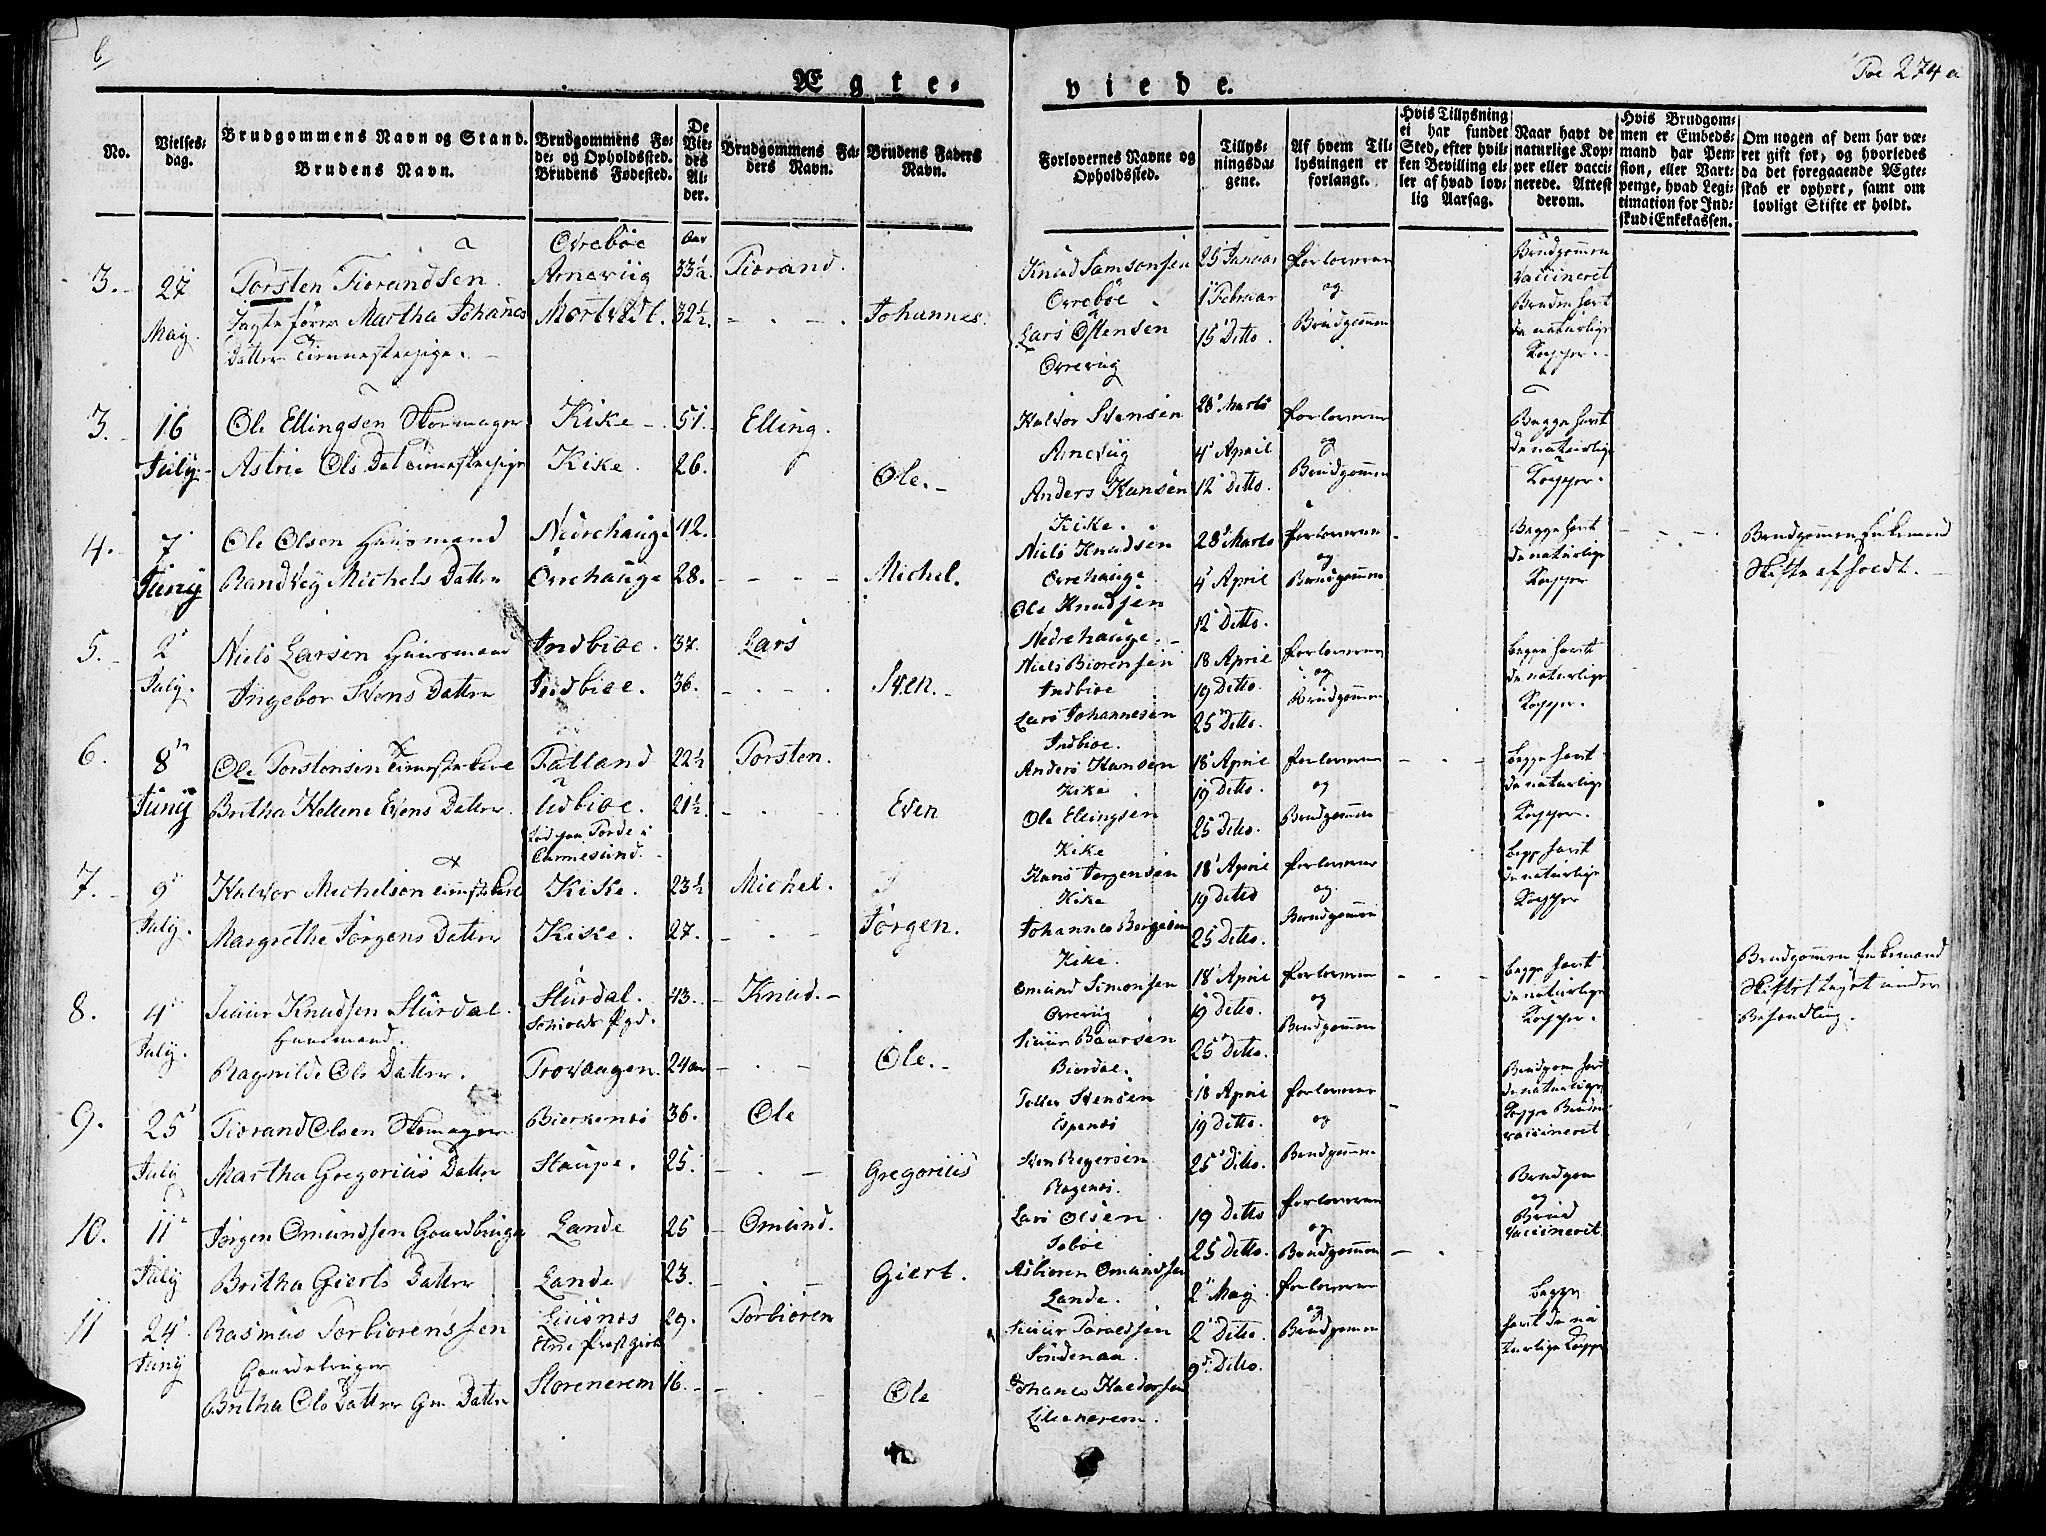 6
Foe 274 a
Ægte-
viede.
No.
Vielses-
dag.
Brudgommens Navn og Stand.
Brudens Navn.
Brudgommens Fø-
de- og Opholdsted.
Brudens Fødested.
De
Vie-
des
Al-
der.
Brudgommens Fa-
ders Navn.
Brudens Faders
Navn.
Forlovernes Navne og
Opholdssted.
Tillys-
ningsda-
gene.
Af hvem Til-
lysningen er
forlangt.
Hvis Tillysning
ei har fundet
Sted, efter hvil-
ken Bevilling el-
ler af hvad lov-
lig Aarsag.
Naar havt de
naturlige Kop-
per eller vacci-
nerede. Attest
derom.
Hvis Brudgom-
men er Embeds-
mand har Pen-
sion, eller Vart-
penge, hvad Legi-
timation for Ind-
skud i Enkekassen.
Om nogen af dem har væ-
ret gift før, og hvorledes
da det foregaaende Ægte-
skab er ophørt, samt om
lovligt Skifte er holdt.
3. 27 May.
Torsten Tiorandsen
Martha Johanes
Datter
Ovrebøe
Arneviig
Mortvedt.
Aar
33½
32½.
Tiorand.
Johannes.
Knud Samsonsen
Ovrebøe
Lars Østensen
Ovreviig
25 Januar
1 Februar
15 Ditto.
Forloverne
og
Brudgommen
Brudgommen
Vaccineret
Bruden havt
de naturlige
Kopper.
3. 16 July.
Ole Ellingsen Skoemager
Astrie Ols Dat
Kike
Kike.
51.
26.
Elling.
Ole.
Halvor Svensen
Arneviig
Anders Hansen
Kike.
28 Marts
4 April
12 Ditto.
Forloverne
og
Brudgommen
Begge havt
de naturlige
Kopper.
4. 7 Juny
Ole Olsen Huusmand
Randvey Michels Datter
Nedrehauge
Ovrehauge
42.
28.
Michel.
Niels Knudsen
Ovrehauge
Ole Knudsen
Nedrehauge.
28 Marts
4 April
12 Ditto.
Forloverne
og
Brudgommen
Begge havt
de naturlige
Kopper
Brudgommen Enkemand
Skifte afholdt.
5. 2 July.
Niels Larsen Huusmand
Ingebor Svens Datter
Indbiøe.
Indbiøe.
37.
36.
Lars
Sven.
Niels Biørensen
Indbiøe
Lars Johannesen
Indbiøe.
18 April
19 Ditto.
25 Ditto.
Forloverne
og
Brudgommen
begge havt
de naturlige
Kopper.
6. 8 Juny
Ole Torstensen
Britha Hellene Evens Datter
Fatland
Udbiøe.
22½
21½.
Torsten.
Even
Anders Hansen
Kike
Ole Ellingsen
Kike
18 April
19 Ditto.
25 Ditto.
Forloverne
og
Brudgommen
begge havt
de naturlige
Kopper.
7. 9 July.
Halvor Michelsen
Margrethe Jørgens Datter
Carmesund.
Kike.
Kike.
23½
27.
Michel.
Jørgen.
Hans Jørgensen
Kike
Johannes Bergesen
Kike.
18 April
19 Ditto
25 Ditto.
Forloverne
og
Brudgommen
begge havt
de naturlige
Kopper
8. 4 July.
Siuur Knudsen Stuedal.
Huusmand.
Ragnilde Ols Datter.
Stuedal.
Schiolds Pgd.
Trovaagen.
43.
24 aar
Knud.
Ole.
Omund Simonsen
Ovreviig
Siuur Baarsen
Biordal.
18 April
19 Ditto.
25 Ditto.
Forloverne
og
Brudgommen
begge havt
de naturlige
Kopper.
Brudgommen Enkemand
Skiftet taget under
Behandling.
9. 25 July
Tiorand Olsen Skomager
Martha Gregorius Datter
Bierkenes
Staupe.
36.
25.
Ole
Gregorius
Toller Stensen
Espenes
Sven Regersen
Rogenes.
18 April
19 Ditto.
25 Ditto.
Forloverne
og
Brudgommen
Brudgom havt
de naturlige
Kopper Bruden
vaccineret
10. 11 July
Jørgen Omundsen Gaardbruger
Britha Gierts Datter
Lande
Lande
25
23.
Omund.
Giert.
Lars Olsen
Tobøe
Asbiøren Omundsen
Lande.
19 Ditto
25 Ditto.
2 May
Forloverne
og
Brudgommen
Brudgom
og
Brud
Vaccineret
11 24 Juny
Rasmus Torbiørenssen
Gaardbruger
Britha Ols Datter Gm. Datter
Liusnes
Etne Præstgield
Storenerem
29.
16.
Torbiøren
Ole
Siuur Taraldsen
Søndenaa.
Johanes Haldorsen
Lilienerem.
2 Ditto.
9 Ditto.
Forloverne
og
Brudgommen
begge
havt de na
turlige Kopper